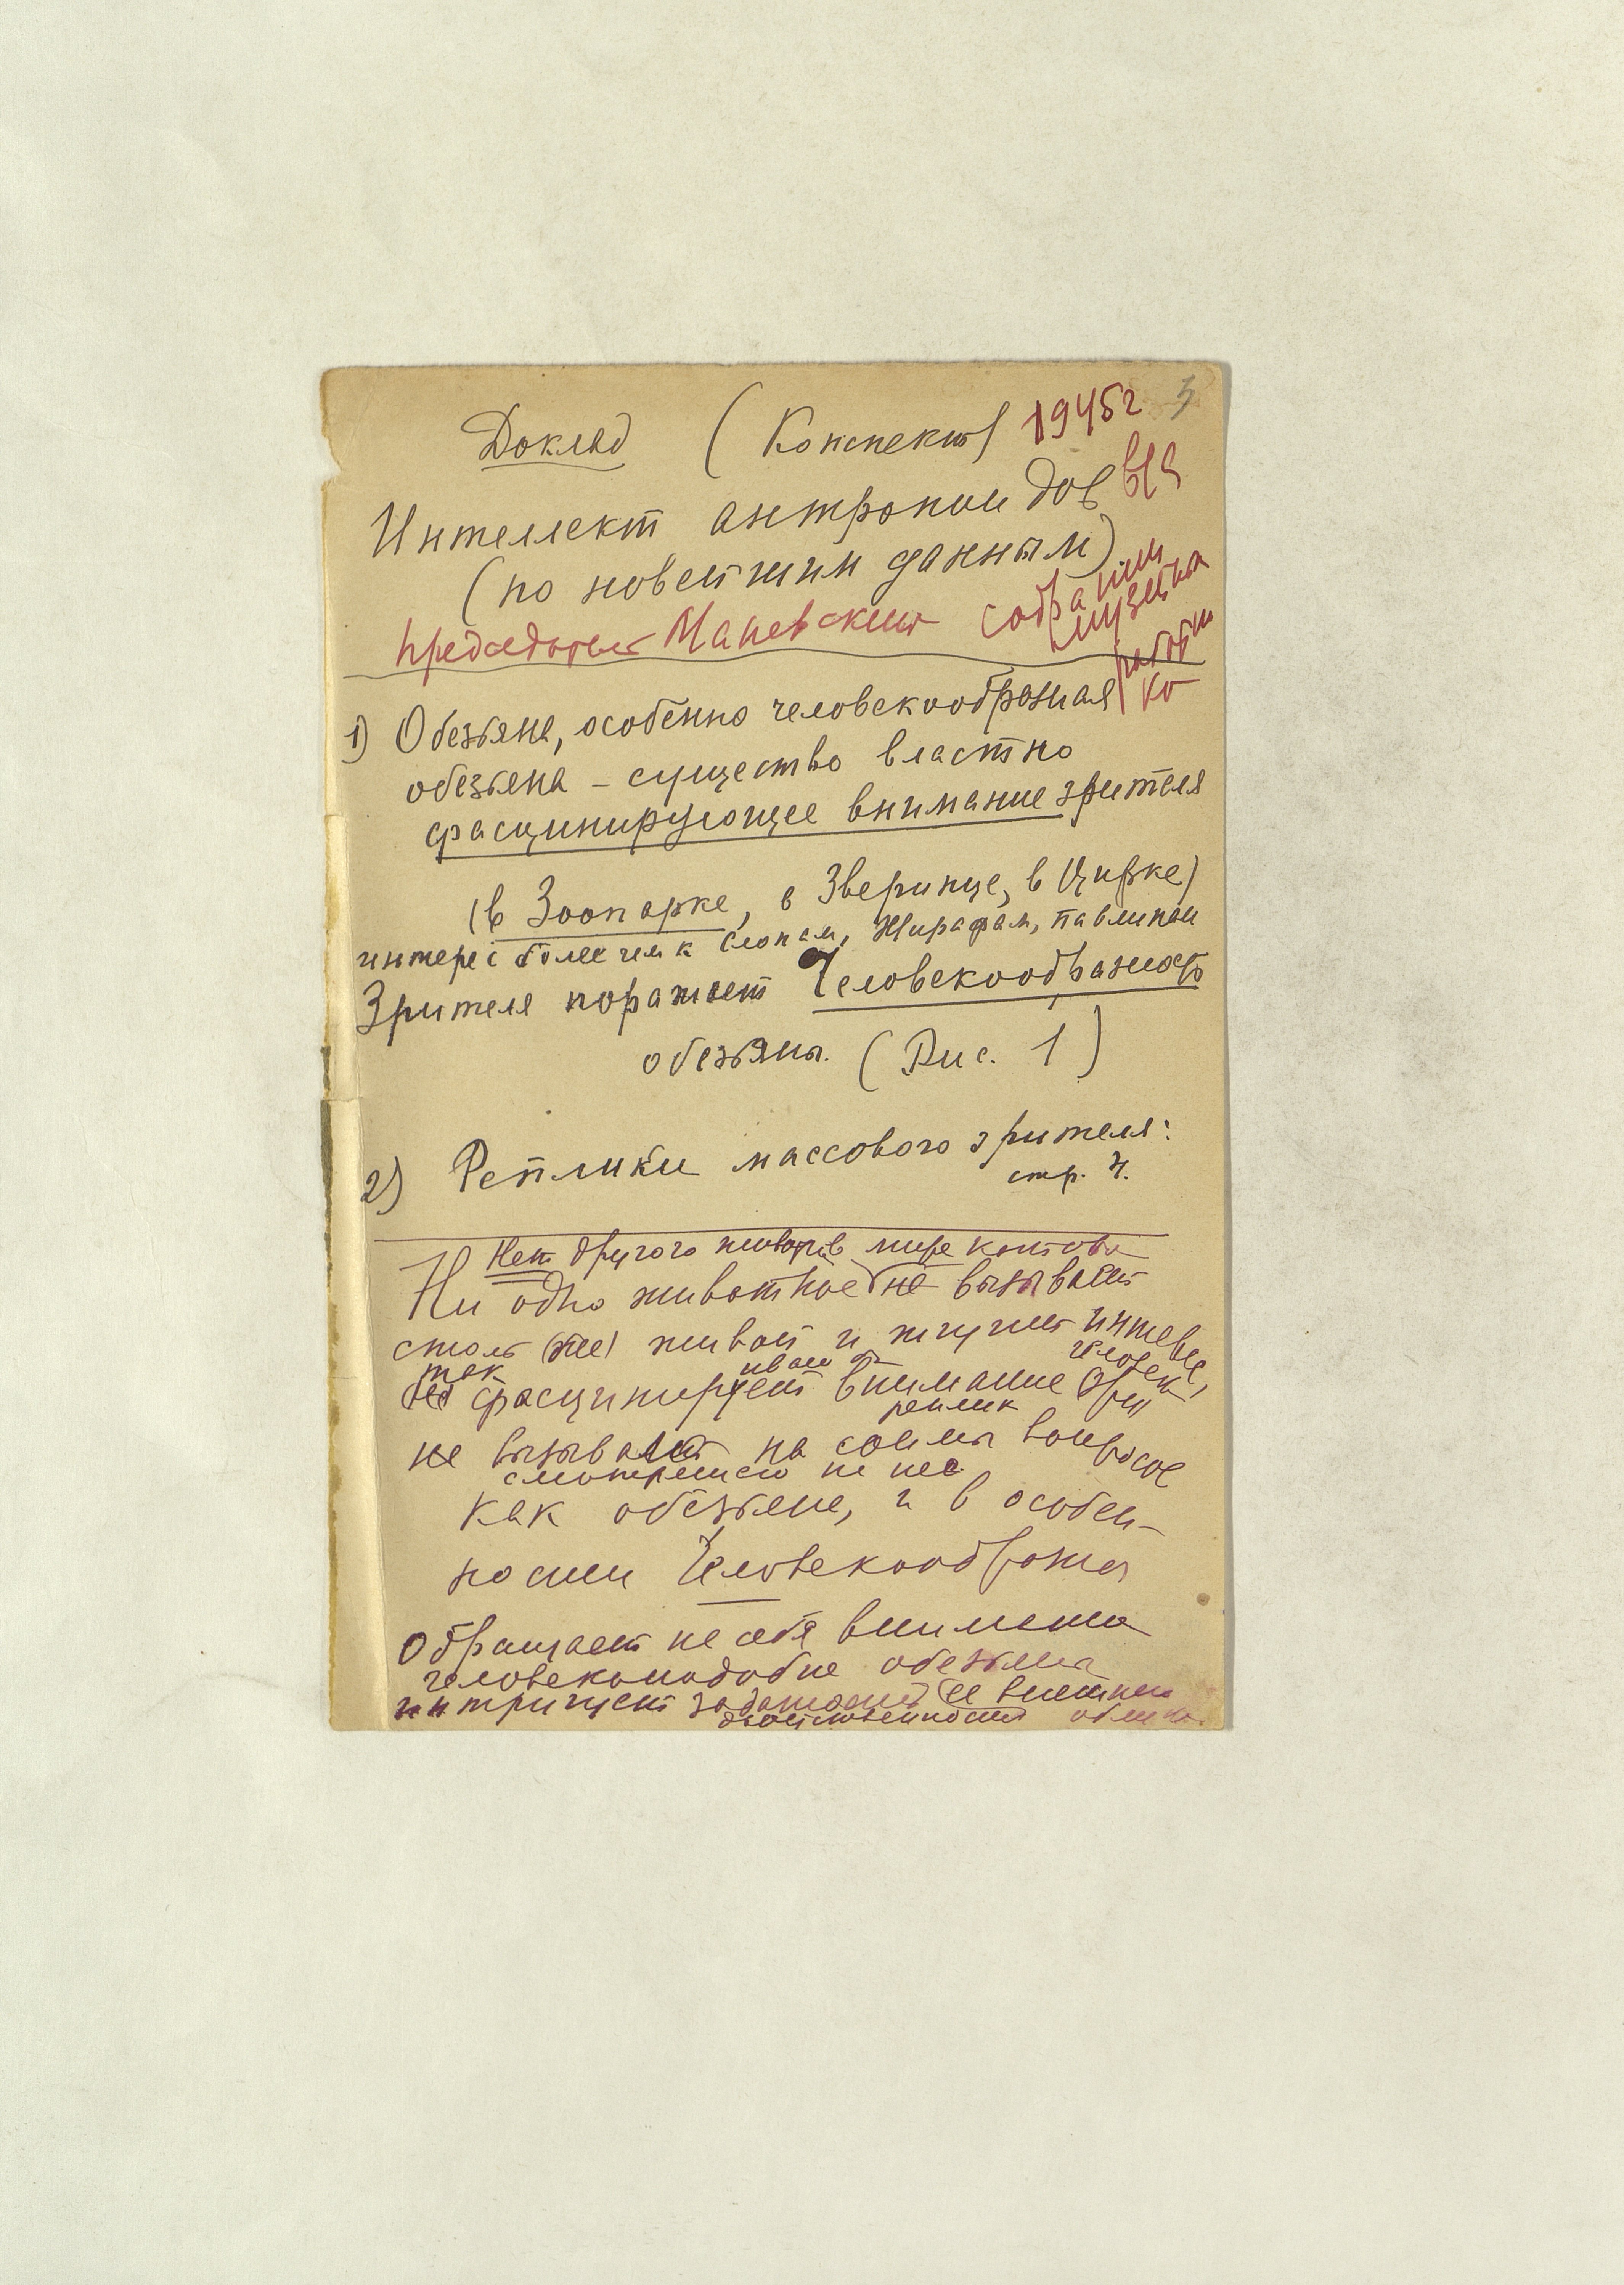 Доклад (Конспект) 1945г 3
Интеллект антропоидов
(по новейшим данным)
председатель Маневский собрание
1) Обезьяна, особенно человекообразная
обезьяна – существо властно
фасцинирующее внимание зрителя
(в Зоопарке, в Зверинце, в Цирке)
интерес более чем к слонам, жирафам, павлинам
Зрителя поражает Человекообразность
обезьяны. (Рис. 1)
2) Реплики массового зрителя:
стр. 4.
Нет другого в мире
Ни одно животное не вызывает
столь живой и интерес,
так
фасцинирует внимание
реплик
не вызывает вопросов
смотрящего на нее
как обезьяна, и в особен-
ности Человекообразная
Обращает на себя внимание
человекоподобие обезьяны
интригует ее внешнего
двойственность облика